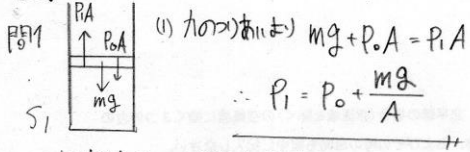 問1
P₁A
P₀A
mg
S₁
(1) 力のつりあいより mg + P₀A = P₁A
∴ P₁ = P₀ + mg/A